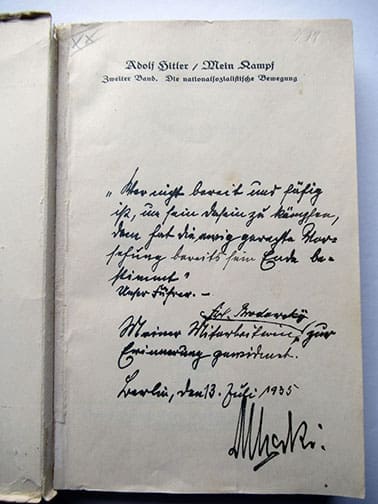 xx
Adolf Hitler / Mein Kampf
Zweiter Band. Die nationalsozialistische Bewegung
„Wer nicht bereit und fähig
ist, um sein Dasein zu kämpfen,
dem hat die ewig gerechte Vor-
sehung bereits sein Ende be-
stimmt"
Unser Führer. –
Frl.
Meiner Mitarbeiterin, zur
Erinnerung gewidmet.
Berlin, den 13. Juli 1935